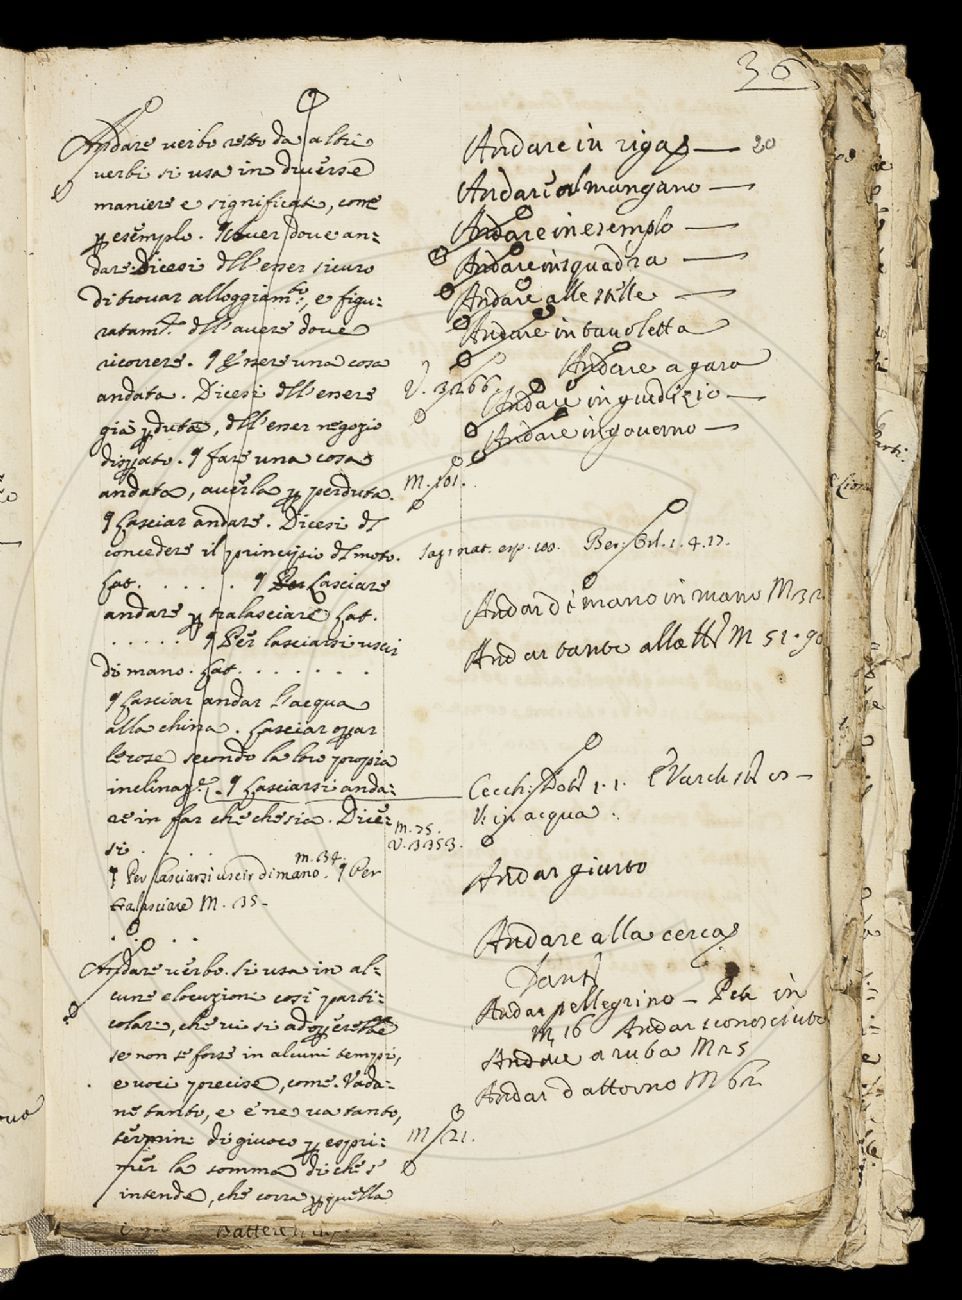 36
Andare verbo retto da altri
verbi si usa in diverse
maniere e significati, come
ꝑ esempio. ¶ Aver dove an=
dare. Dicesi dell'esser sicuro
di trovar alloggiam.to, e figu=
ratam.te dell'avere dove
ricorrere. ¶ Essere una cosa
andata. Dicesi dell'essere
già ꝑduta, dell'esser negozio
disꝑato. ¶ fare una cosa
andata, averla ꝑ perduta.
¶ Lasciar andare. Dicesi del
concedere il principio del moto.
Lat. . . . . . ¶ Lasciare
andare ꝑ tralasciare Lat.
. . . . . ¶ Per lasciarsi usci
di mano. Lat. . . . . . .
¶ Lasciar andar l'acqua
alla china. Lasciar oꝑar
le cose secondo la loro propia
inclinaz.e ¶ Lasciarsi anda=
re in far che che sia. Dice=
si . . .
¶ Per lasciarsi uscir di mano. M. 34. ¶ Per
tralasciare M. 35.
Andare verbo. si usa in al=
cune elocuzioni così parti=
colari, che vi si adoꝑerebbe
se non se forse in alcuni tempi,
e voci precise, come. Vada=
ne tanto, e e' ne va tanto,
termini di giuoco ꝑ espri=
mer la somma di che s'
intende, che corra ꝑ quella
V. 3266.
M. 101.
M. 35.
V. 3353.
M 21.
Andare in riga — 20
Andare al mangano —
Andare in esemplo —
Andare in squadra —
Andare alle stelle —
Andare in tavoletta
Andare a gara
Andare in giudizio —
Andare in governo —
Sag. nat. esp. 100. Ber. Orl. 1. 4. 17.
Andar di mano in mano M 32
Andar tante M 51. 90
Cecch. Dot. 1. 1.
V. in acqua.
Andar giusto
Andare alla cerca
Dant.
Andar pellegrino — Petr. in
M 16 Andar sconosciuto
Andare a ruba M 25
Andar d'attorno M 62